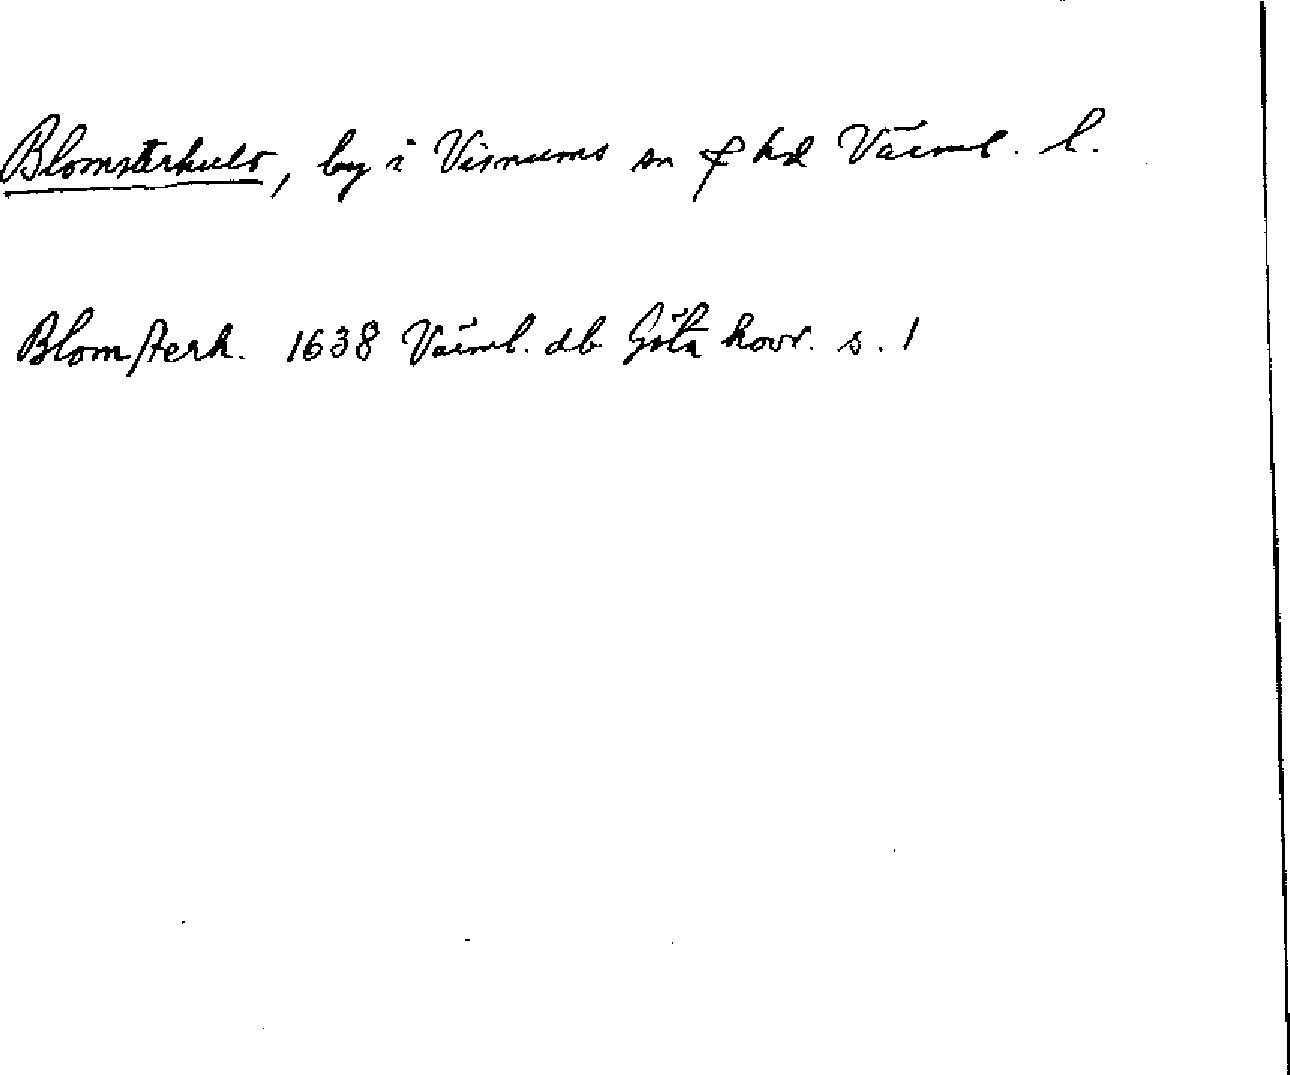 Blomsterhult, by i Visnums sn f hd Värml. l.
Blomsterh. 1638 Värml. db Göta hovr. s. 1